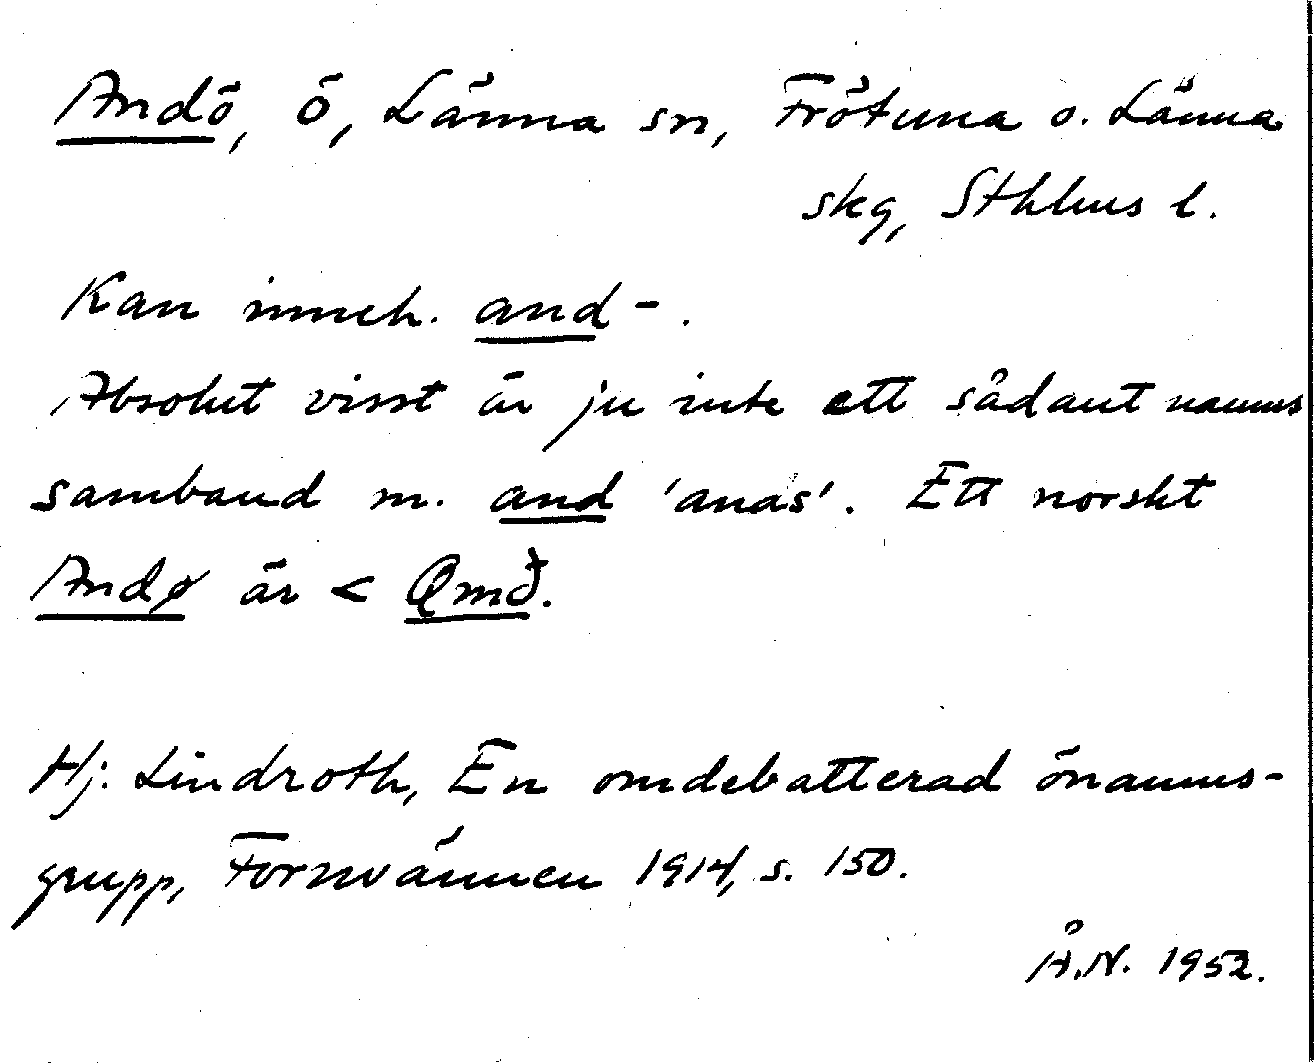 Andö, ö, Länna sn, Frötuna o. Länna
skg, Sthlms l.
Kan inneh. and-.
Absolut visst är ju inte ett sådant namns
samband m. and 'anas'. Ett norskt
Andø är < Qmð.
Hj. Lindroth, En omdebatterad önamns-
grupp, Fornvännen 1914, s. 150.
Å.N. 1952.